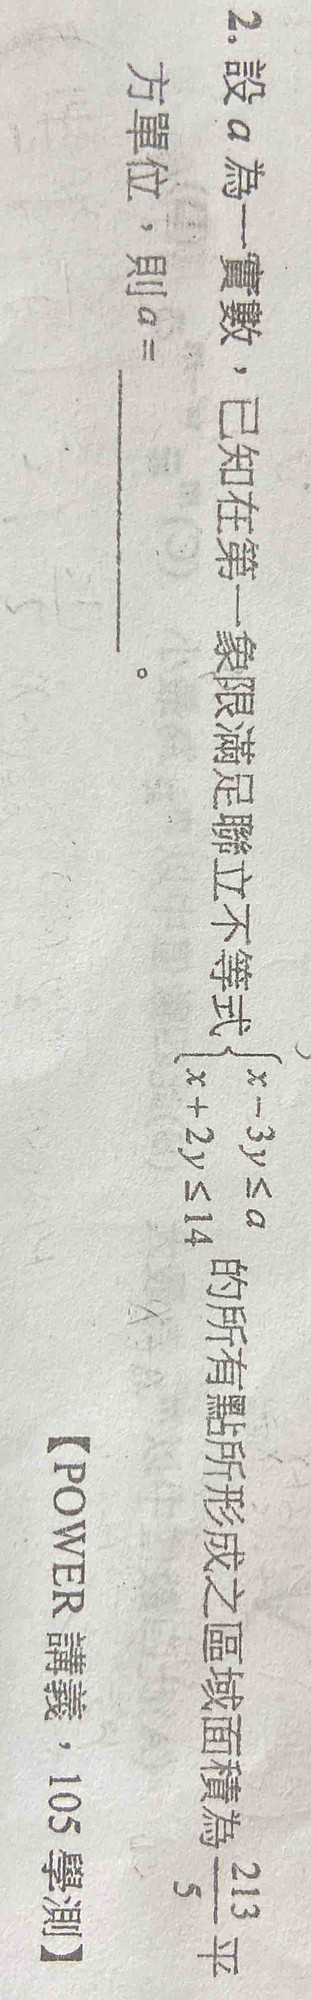 2. 設 a 為一實數，已知在第一象限滿足聯立不等式 { x − 3y ≤ a
x + 2y ≤ 14 的所有點所形成之區域面積為 213/5 平
方單位，則 a = ________。
【POWER 講義，105 學測】